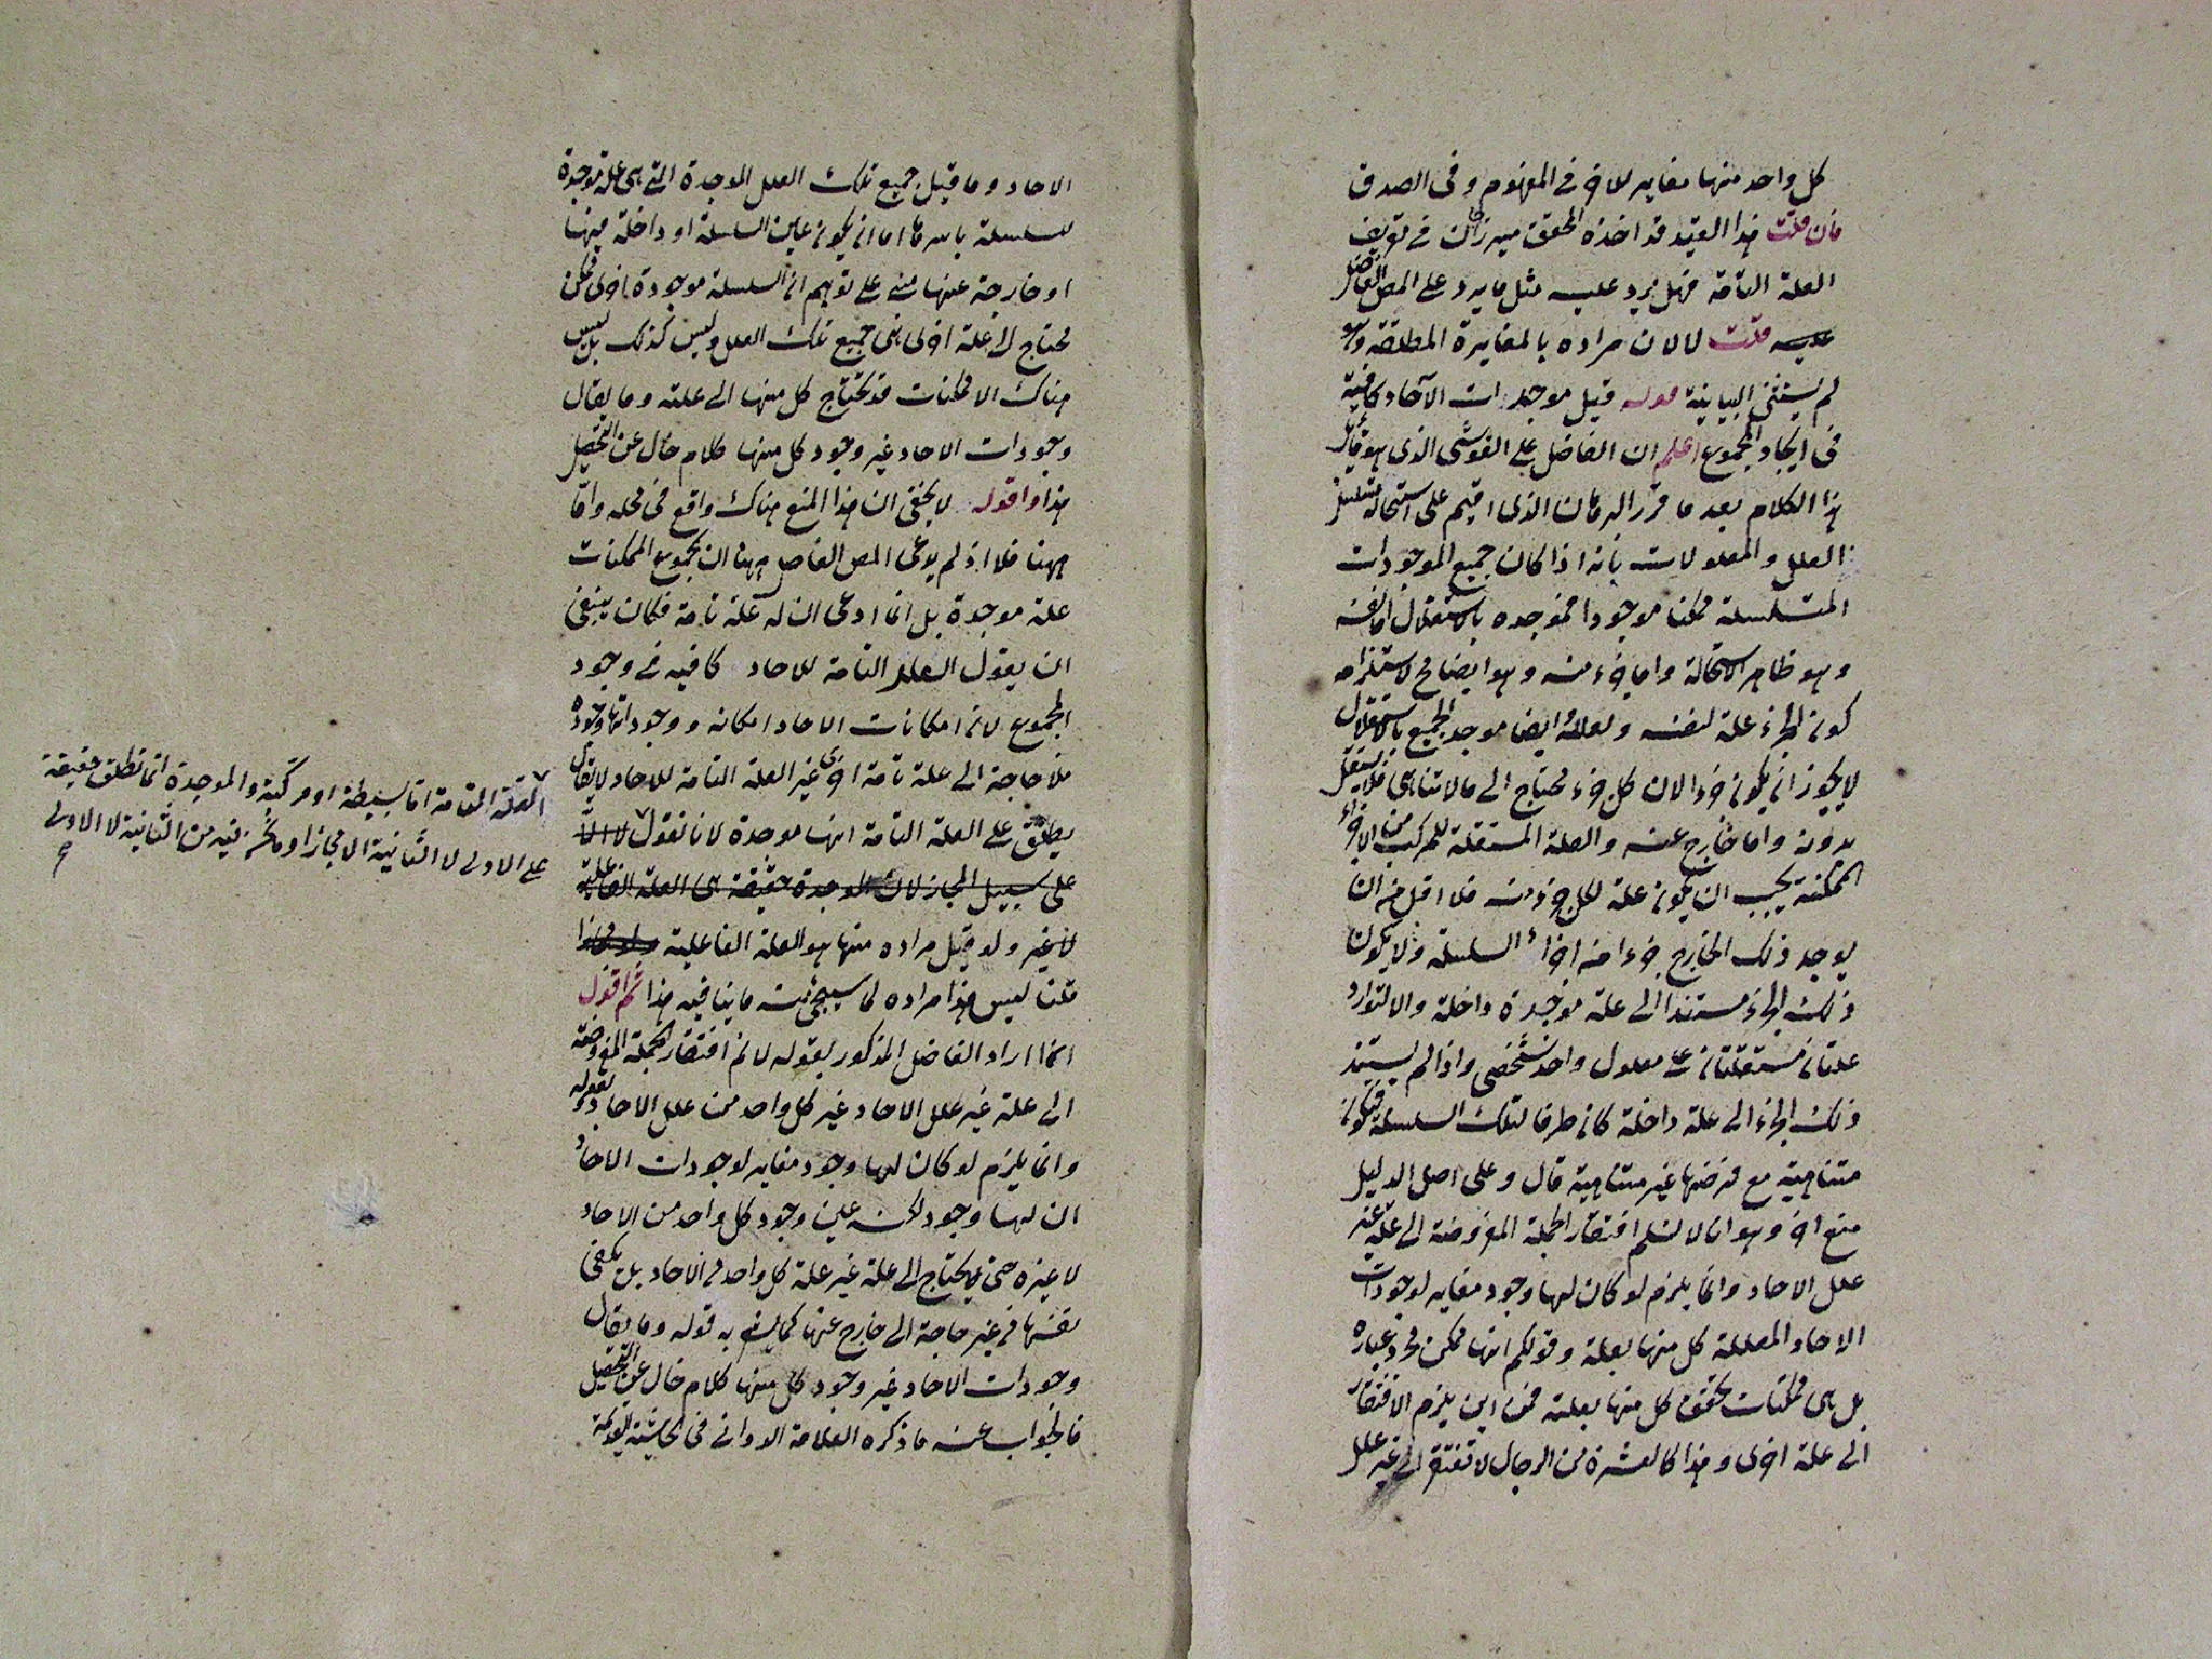 كل واحد منها مغاير للاخر في المفهوم وفي الصدق
فان قلت هذا القيد قد اخذه المحقق ميرزاجان في تعريف
العلة التامة فهل يرد عليه مثل ما يرد على المص الفاضل
عليه قلت لا لان مراده بالمغايرة المطلقة وهو
لم يستثنى البياينة قوله قيل موجدات الآحاد كافية
في ايجاد المجموع اعلم ان الفاضل على القوشى الذي هو قائل
هذا الكلام بعد ما قرر البرهان الذي اقيم على استحالة تسلسل
العلل والمعلولات بانه اذا كان جميع الموجودات
المتسلسلة ممكنا موجودا فموجده بالاستقلال اما نفسه
وهو ظاهر الاستحالة واما جزء منه وهو ايضا مح لاستلزامه
كون الجزء علة لنفسه ولعلله ايضا موجد الجميع بالاستقلال
لا يجوز ان يكون جزءا لان كل جزء محتاج الى ما لا تناهى فلا يستقل
بدونه واما خارج عنه والعلة المستقلة للمركب من الاجزاء
الممكنة يجب ان يكون علة لكل جزء منه فلا اقل من ان
يوجد ذلك الخارج جزءا من اجزاء السلسلة ولا يكون
ذلك الجزء مستندا الى علة موجدة داخلة والا لتوارد
علتان مستقلتان على معلول واحد شخصي واذا لم يستند
ذلك الجزء الى علة داخلة كان طرفا لتلك السلسلة فيكون
متناهية مع فرضها غير متناهية قال وعلى اصل الدليل
منع اخر وهو انا لا نسلم افتقار الجملة المفروضة الى علة غير
علل الاحاد وانما يلزم لو كان لها وجود مغاير لوجودات
الاحاد المعللة كل منها بعلة وقولكم انها ممكن مجرد عبارة
بل هي ممكنات تحقق كل منها بعلته فمن اين يلزم الافتقار
الى علة اخرى وهذا كالعشرة من الرجال لا تفتقر الى غير علل
الاحاد وما قيل جميع تلك العلل الموجدة التي هي علة موجدة
للسلسلة باسرها اما ان يكون عين السلسلة او داخلة فيها
او خارجة عنها مبني على توهم ان السلسلة موجودة اخرى ممكن
محتاج الى علة اخرى هي جميع تلك العلل وليس كذلك بل ليس
هناك الا ممكنات قد تحتاج كل منها الى علته وما يقال
وجودات الاحاد غير وجود كل منها كلام خال عن التحصيل
هذا واقول لا يخفى ان هذا المنع هناك واقع في محله واما
ههنا فلا اذ لم يدعى المص الفاضل ههنا ان لمجموع الممكنات
علة موجدة بل انما ادعى ان له علة تامة فكان ينبغي
ان يقول العلل التامة للاحاد كافيه في وجود
المجموع لان امكانات الاحاد امكانه ووجوداتها وجوده
فلا حاجة الى علة تامة اخرى غير العلة التامة للاحاد لا يقال
يطلق على العلة التامة انها موجدة لانا نقول لا الا
على سبيل المجاز لان الموجدة حقيقة هي العلة الفاعلية
لا غير ولو قيل مراده منها هو العلة الفاعلية ولو مجازا
قلنا ليس هذا مراده لما سيجئ منه ما ينافيه هذا ثم اقول
انما اراد الفاضل المذكور بقوله لا نم افتقار الجملة المفروضة
الى علة غير علل الاحاد غير كل واحد من علل الاحاد وبقوله
وانما يلزم لو كان لها وجود مغاير لوجودات الاحاد
ان لها وجود لكنه عين وجود كل واحد من الاحاد
لا غيره حتى يحتاج الى علة غير علة كل واحد من الاحاد بل يكفي
نفسها من غير حاجة الى خارج عنها كما يشعر به قوله وما يقال
وجودات الاحاد غير وجود كل منها كلام خال عن التحصيل
فالجواب عنه ما ذكره العلامة الدواني في الحاشية القديمة
العلة التامة اما بسيطة او مركبة والموجدة انما تطلق حقيقة
على الاولى لا الثانية الا مجازا وما نحن فيه من الثانية لا الاولى